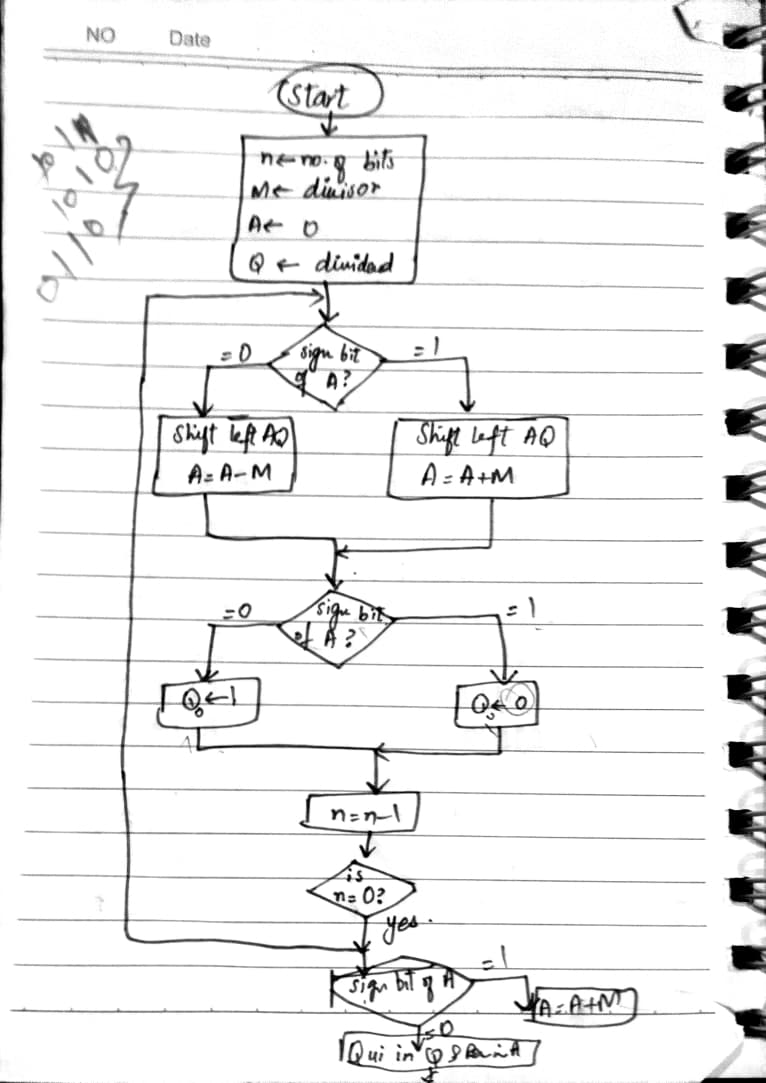 NO Date
Start
n ← no. of bits
M ← divisor
A ← 0
Q ← dividend
sign bit
of A?
=0
=1
Shift left AQ
A = A - M
Shift left AQ
A = A + M
sign bit
of A?
=0
=1
Q₀ ← 1
Q₀ ← 0
n = n - 1
is
n = 0?
yes.
sign bit of A
=1
A = A + M
=0
Qui in Q &